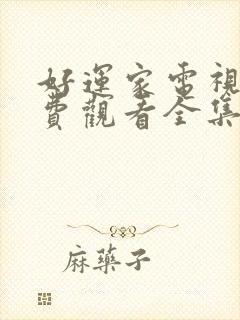 好運家電視
費觀看全集
麻藥子